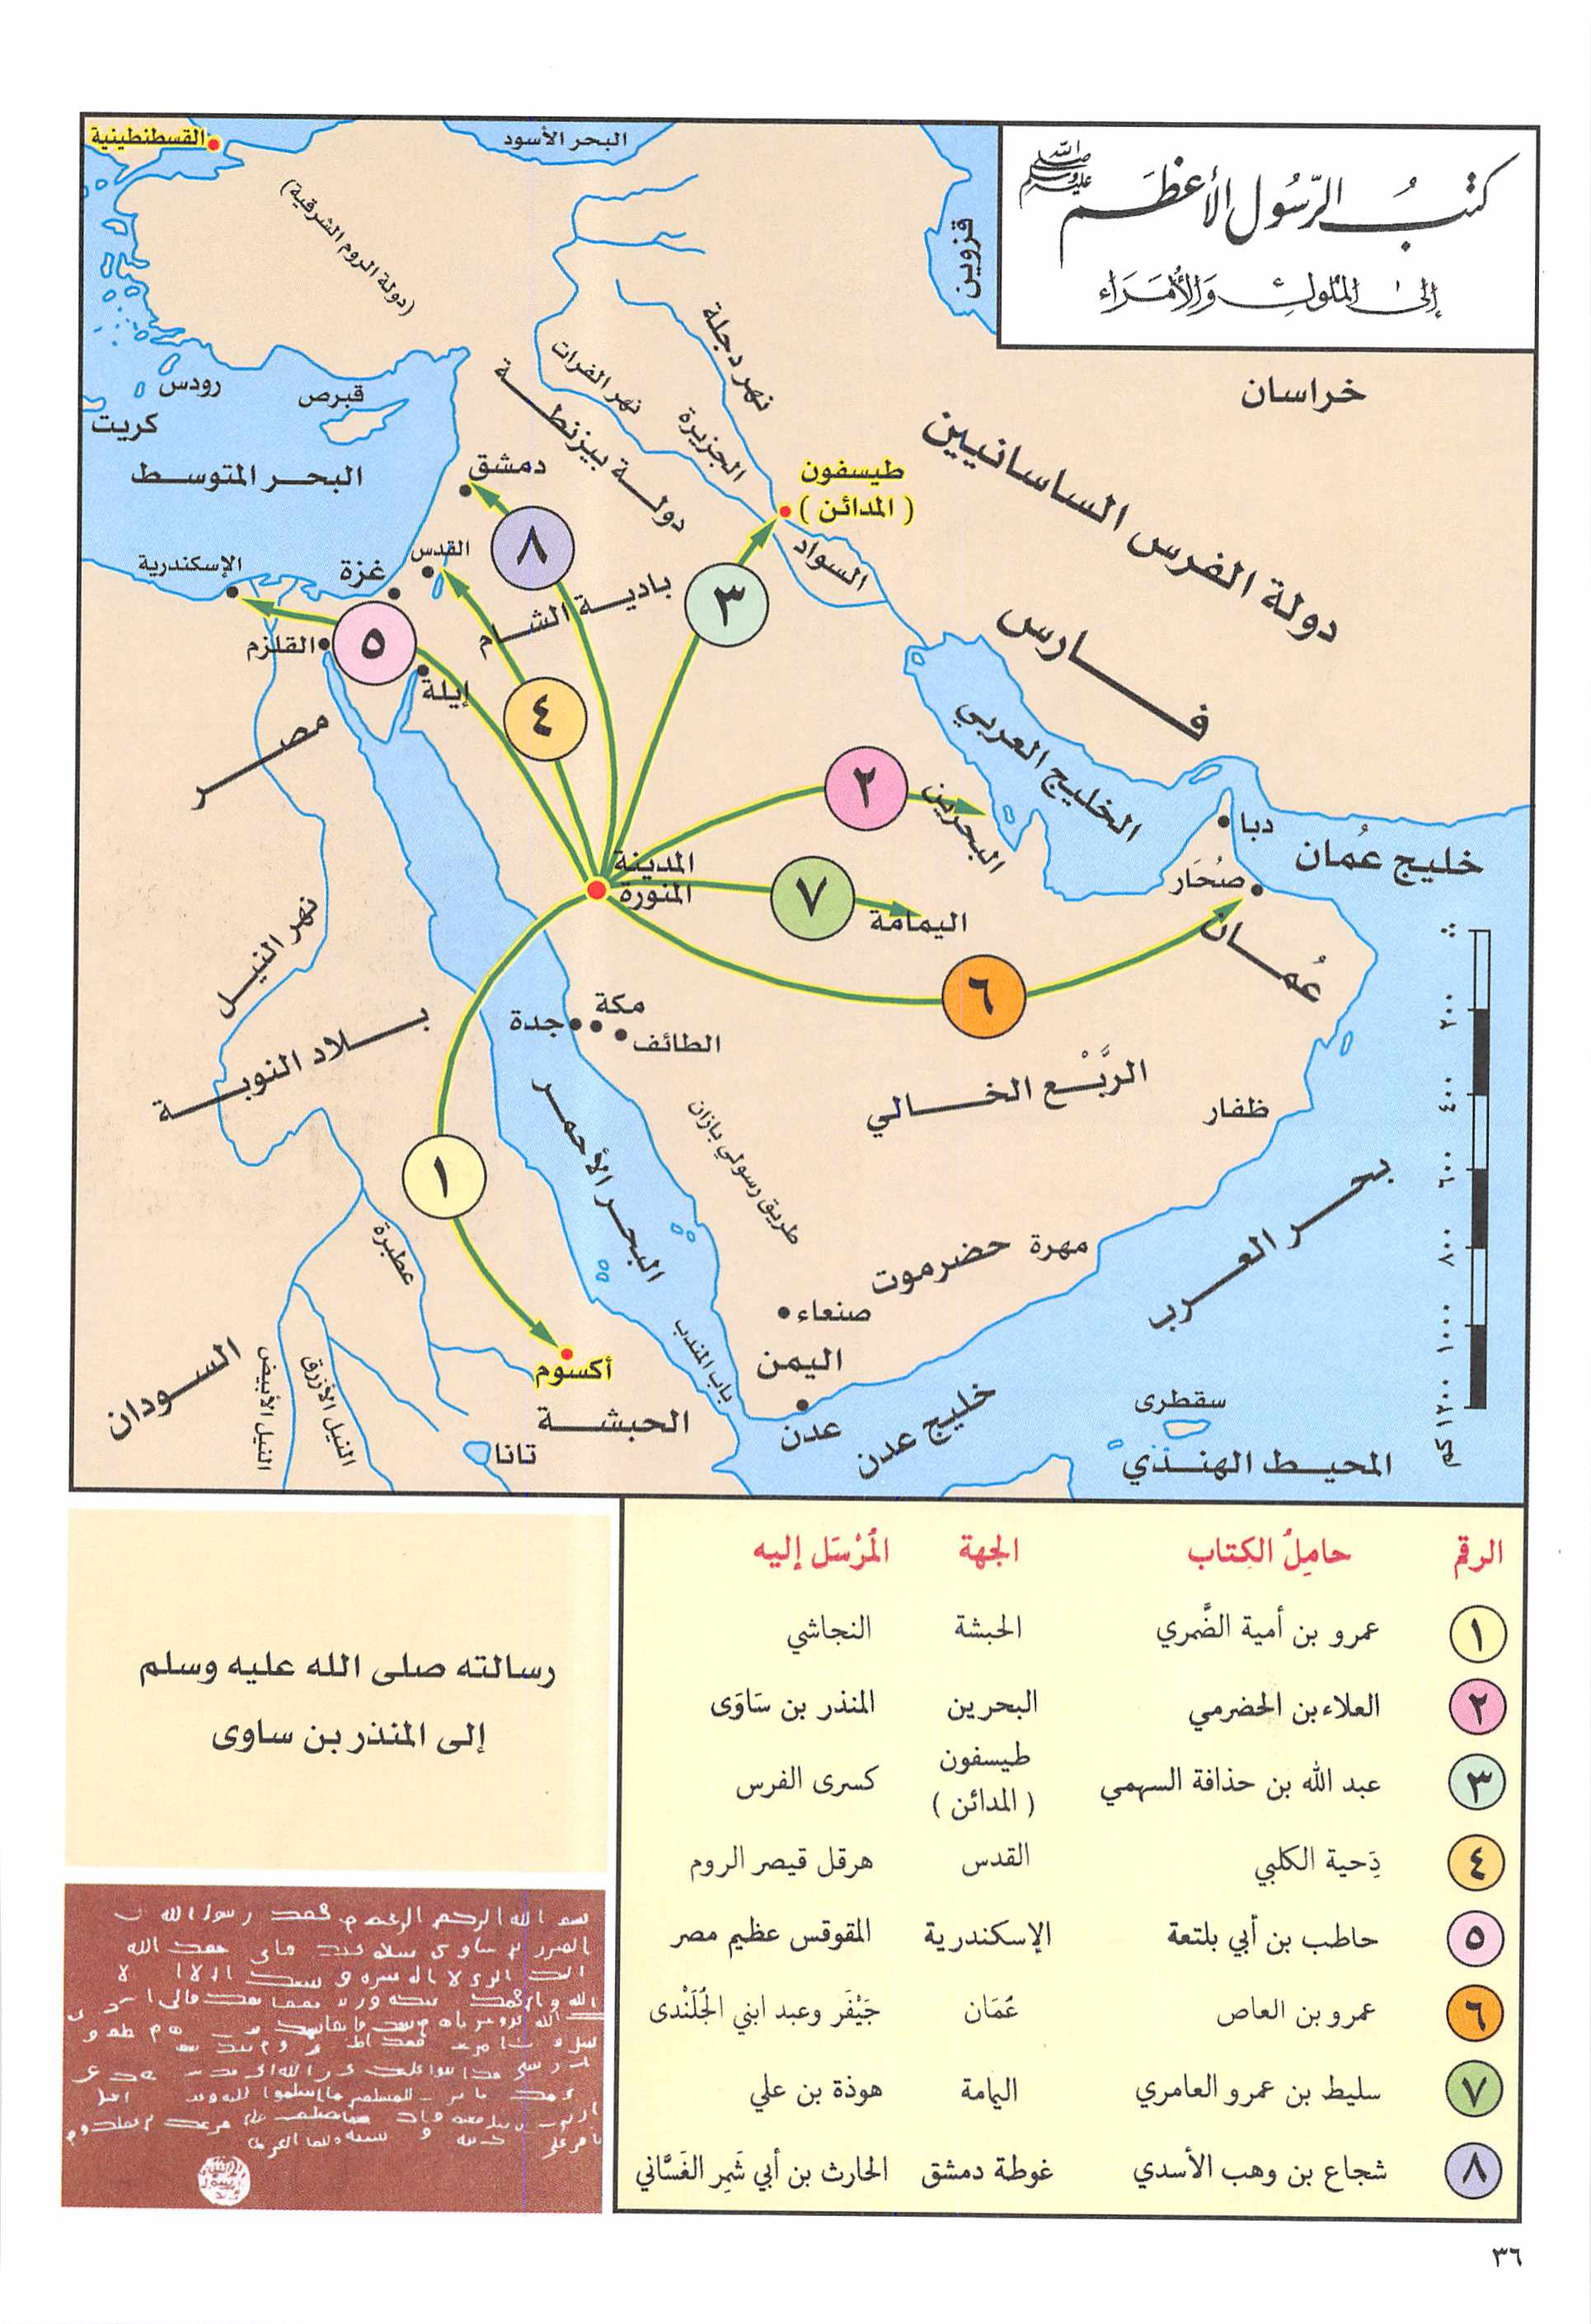 كتبُ الرّسُول الأعظَم صلى الله عليه وسلم
إلى المُلوكِ وَالأُمَرَاء
القسطنطينية
البحر الأسود
(دولة الروم الشرقية)
قزوين
نهر دجلة
نهر الفرات
الجزيرة
دولة بيزنطة
خراسان
دولة الفرس الساسانيين
رودس
قبرص
كريت
البحر المتوسط
دمشق
طيسفون
(المدائن)
السواد
القدس
الإسكندرية
غزة
بادية الشام
٨
٣
٥
٤
القلزم
إيلة
فارس
مصر
الخليج العربي
٢
البحرين
دبا
خليج عُمان
صُحَار
عُمان
المدينة
المنورة
٧
اليمامة
٦
نهر النيل
مكة
جدة
الطائف
بلاد النوبة
الرَّبْع الخالي
ظفار
البحر الأحمر
طريق رسولي بازان
١
بحر العرب
عطبرة
مهرة
حضرموت
صنعاء
اليمن
أكسوم
باب المندب
السودان
النيل الأبيض
النيل الأزرق
الحبشة
تانا
عدن
خليج عدن
سقطرى
المحيط الهندي
٢٠٠
٤٠٠
٦٠٠
٨٠٠
١٠٠٠
١٢٠٠ كم
الرقم حامِلُ الكِتاب الجهة المُرْسَل إليه
١ عمرو بن أمية الضَّمري الحبشة النجاشي
٢ العلاء بن الحضرمي البحرين المنذر بن سَاوَى
٣ عبد الله بن حذافة السهمي طيسفون (المدائن) كسرى الفرس
٤ دَحية الكلبي القدس هرقل قيصر الروم
٥ حاطب بن أبي بلتعة الإسكندرية المقوقس عظيم مصر
٦ عمرو بن العاص عُمَان جَيْفَر وعبد ابني الجُلَنْدى
٧ سليط بن عمرو العامري اليمامة هوذة بن علي
٨ شجاع بن وهب الأسدي غوطة دمشق الحارث بن أبي شَمِر الغَسَّاني
رسالته صلى الله عليه وسلم
إلى المنذر بن ساوى
٣٦